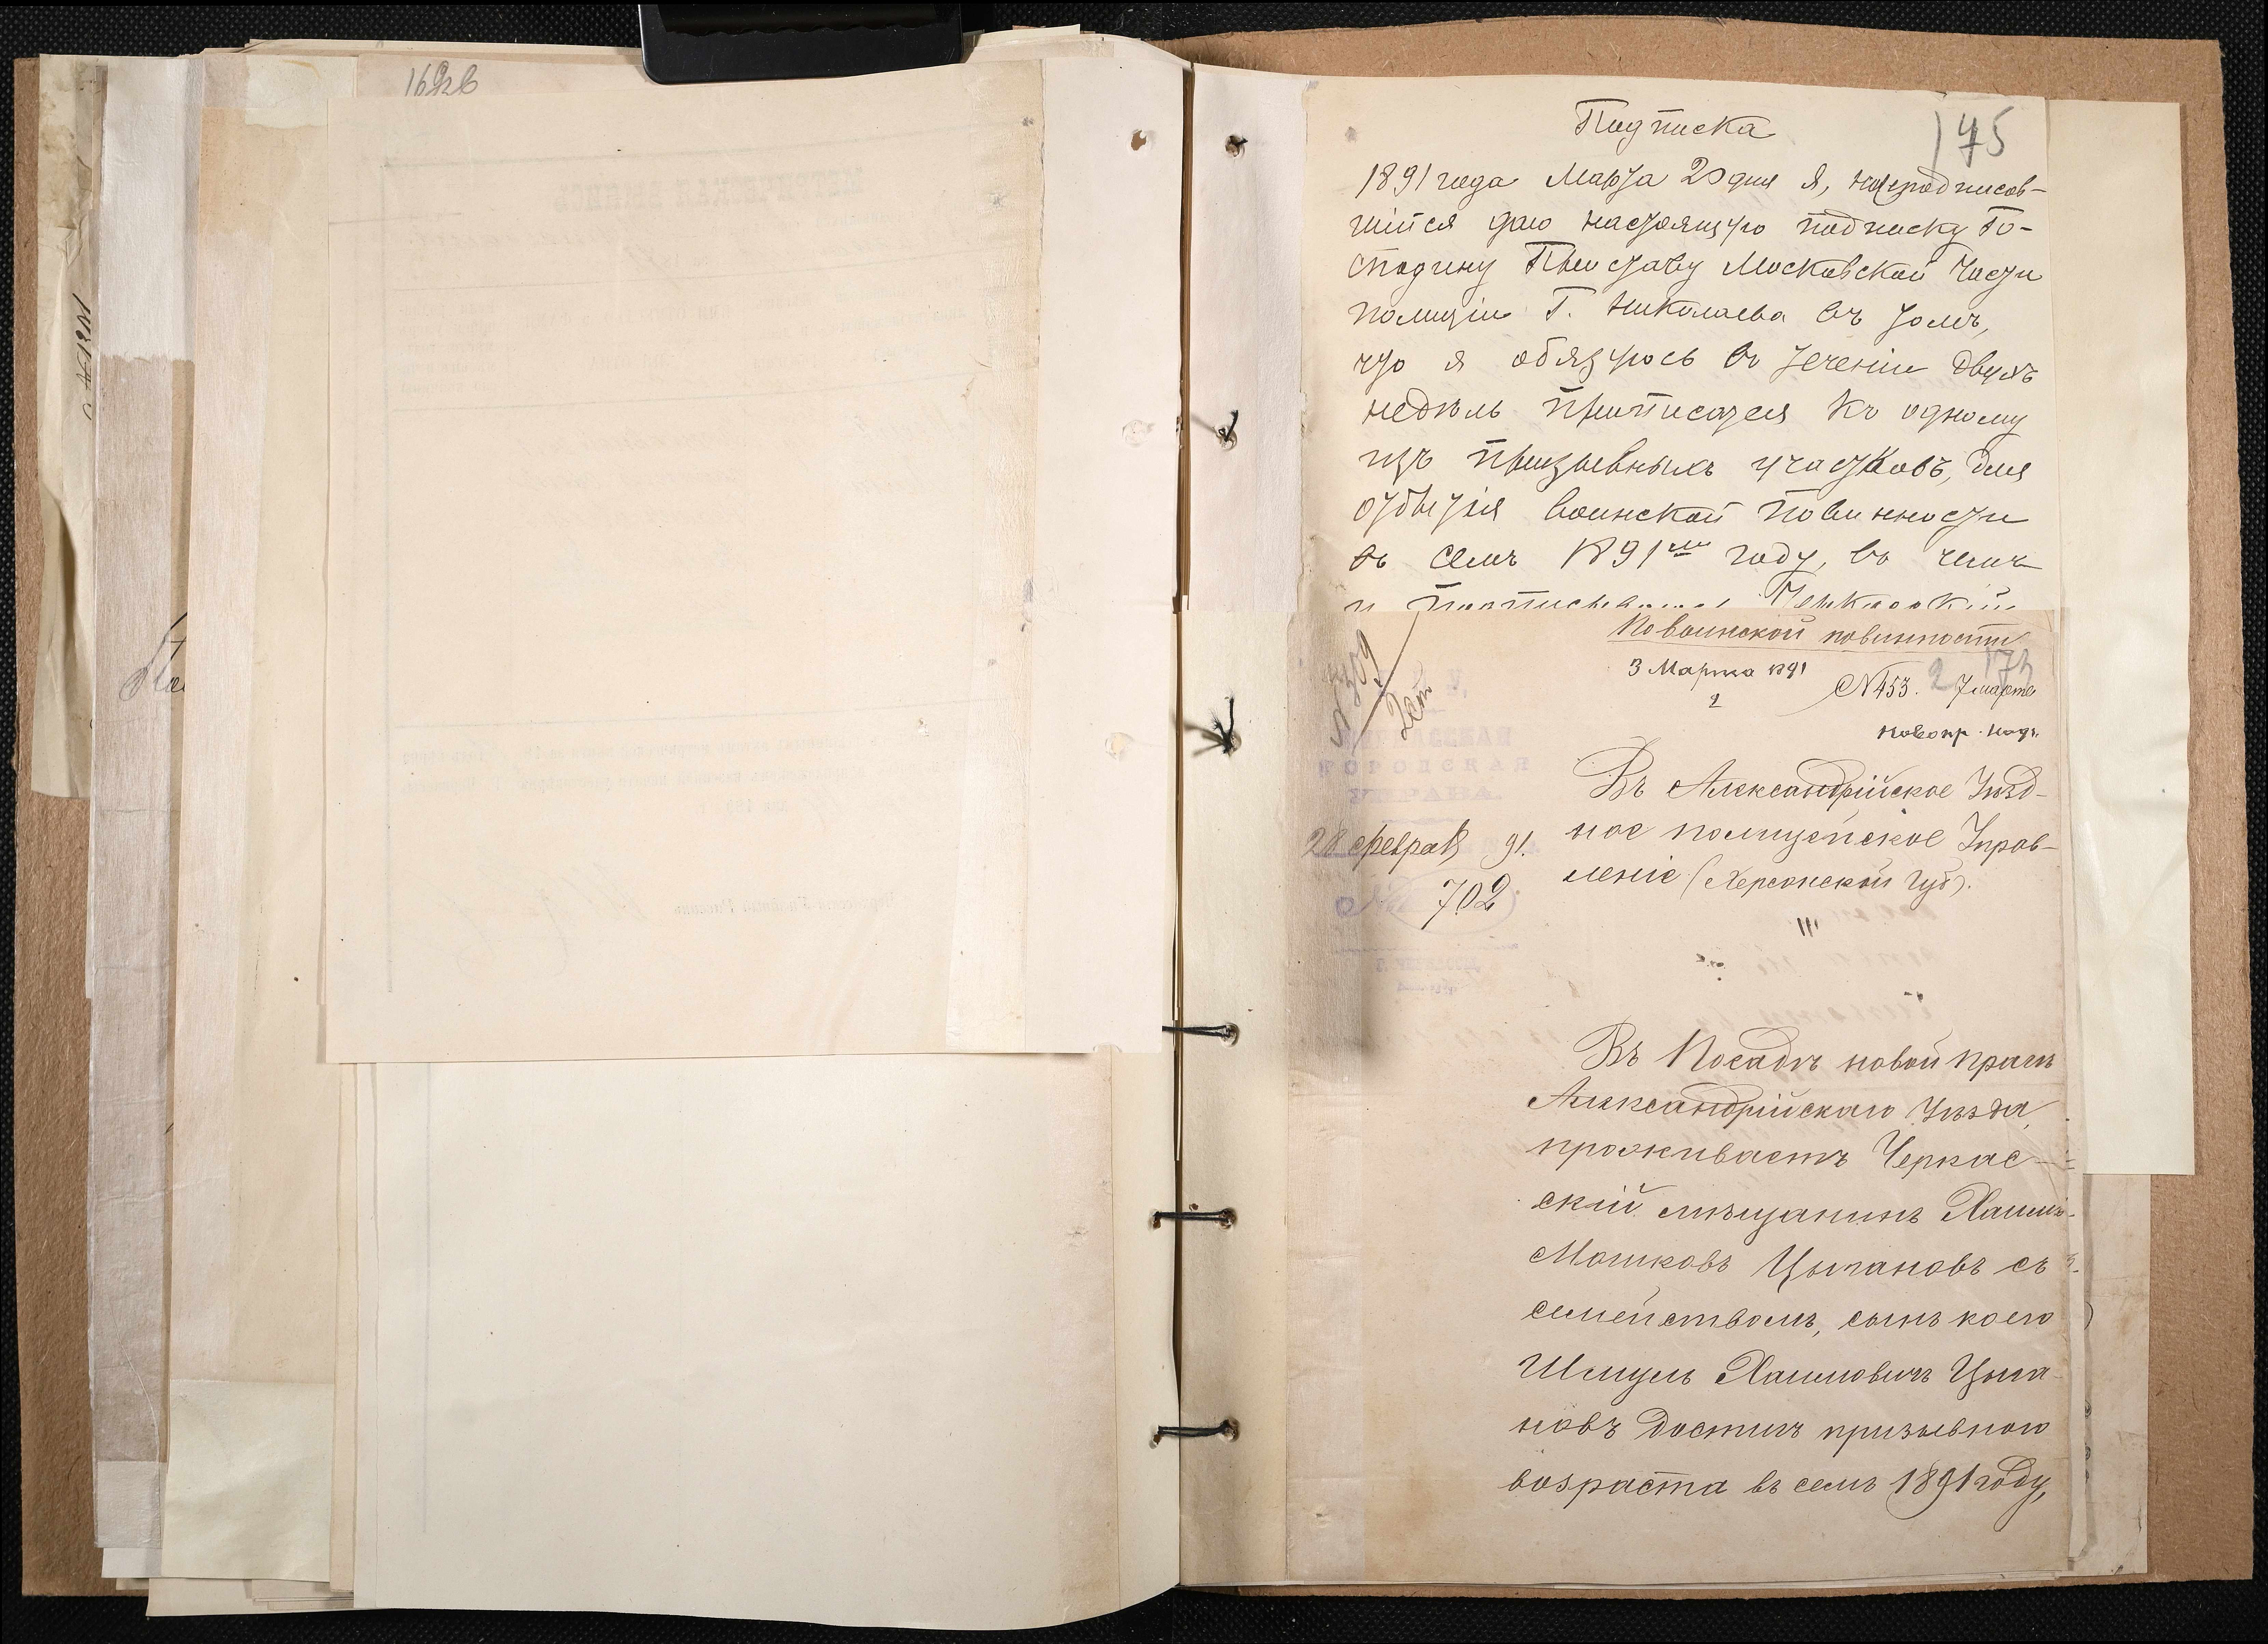 169об
Подписка
175
1891 года Марта 20 дня Я, нижеподписав-
шійся даю настоящую подписку Го-
сподину Приставу Московской части
полиціи Г. Николаева въ томъ,
что я обязуюсь въ теченіи двухъ
недѣль приписатся къ одному
изъ призывныхъ участковъ, для
отбытія воинской повинности
въ семъ 1891мъ году, въ чемъ
и подписываюсь Черкаскій
По воинской повинности
173
3 Марта 1891
2
№ 453. 7 марта
2 ст
новопр. надз.
ГОРОДСКАЯ
УПРАВА
28 феврал 91.
702
Въ Александрійское Уѣзд-
ное полицейское Управ-
леніе (Херсонской Губ).
Въ Посадѣ новой прагѣ
Александрійскаго Уѣзда,
проживаетъ Черкас-
скій мѣщанинъ Хаимъ
Мошковъ Цыгановъ съ
семействомъ, сынъ коего
Шмуль Хаимовичъ Цыга-
новъ достигъ призывного
возраста въ семъ 1891 году,